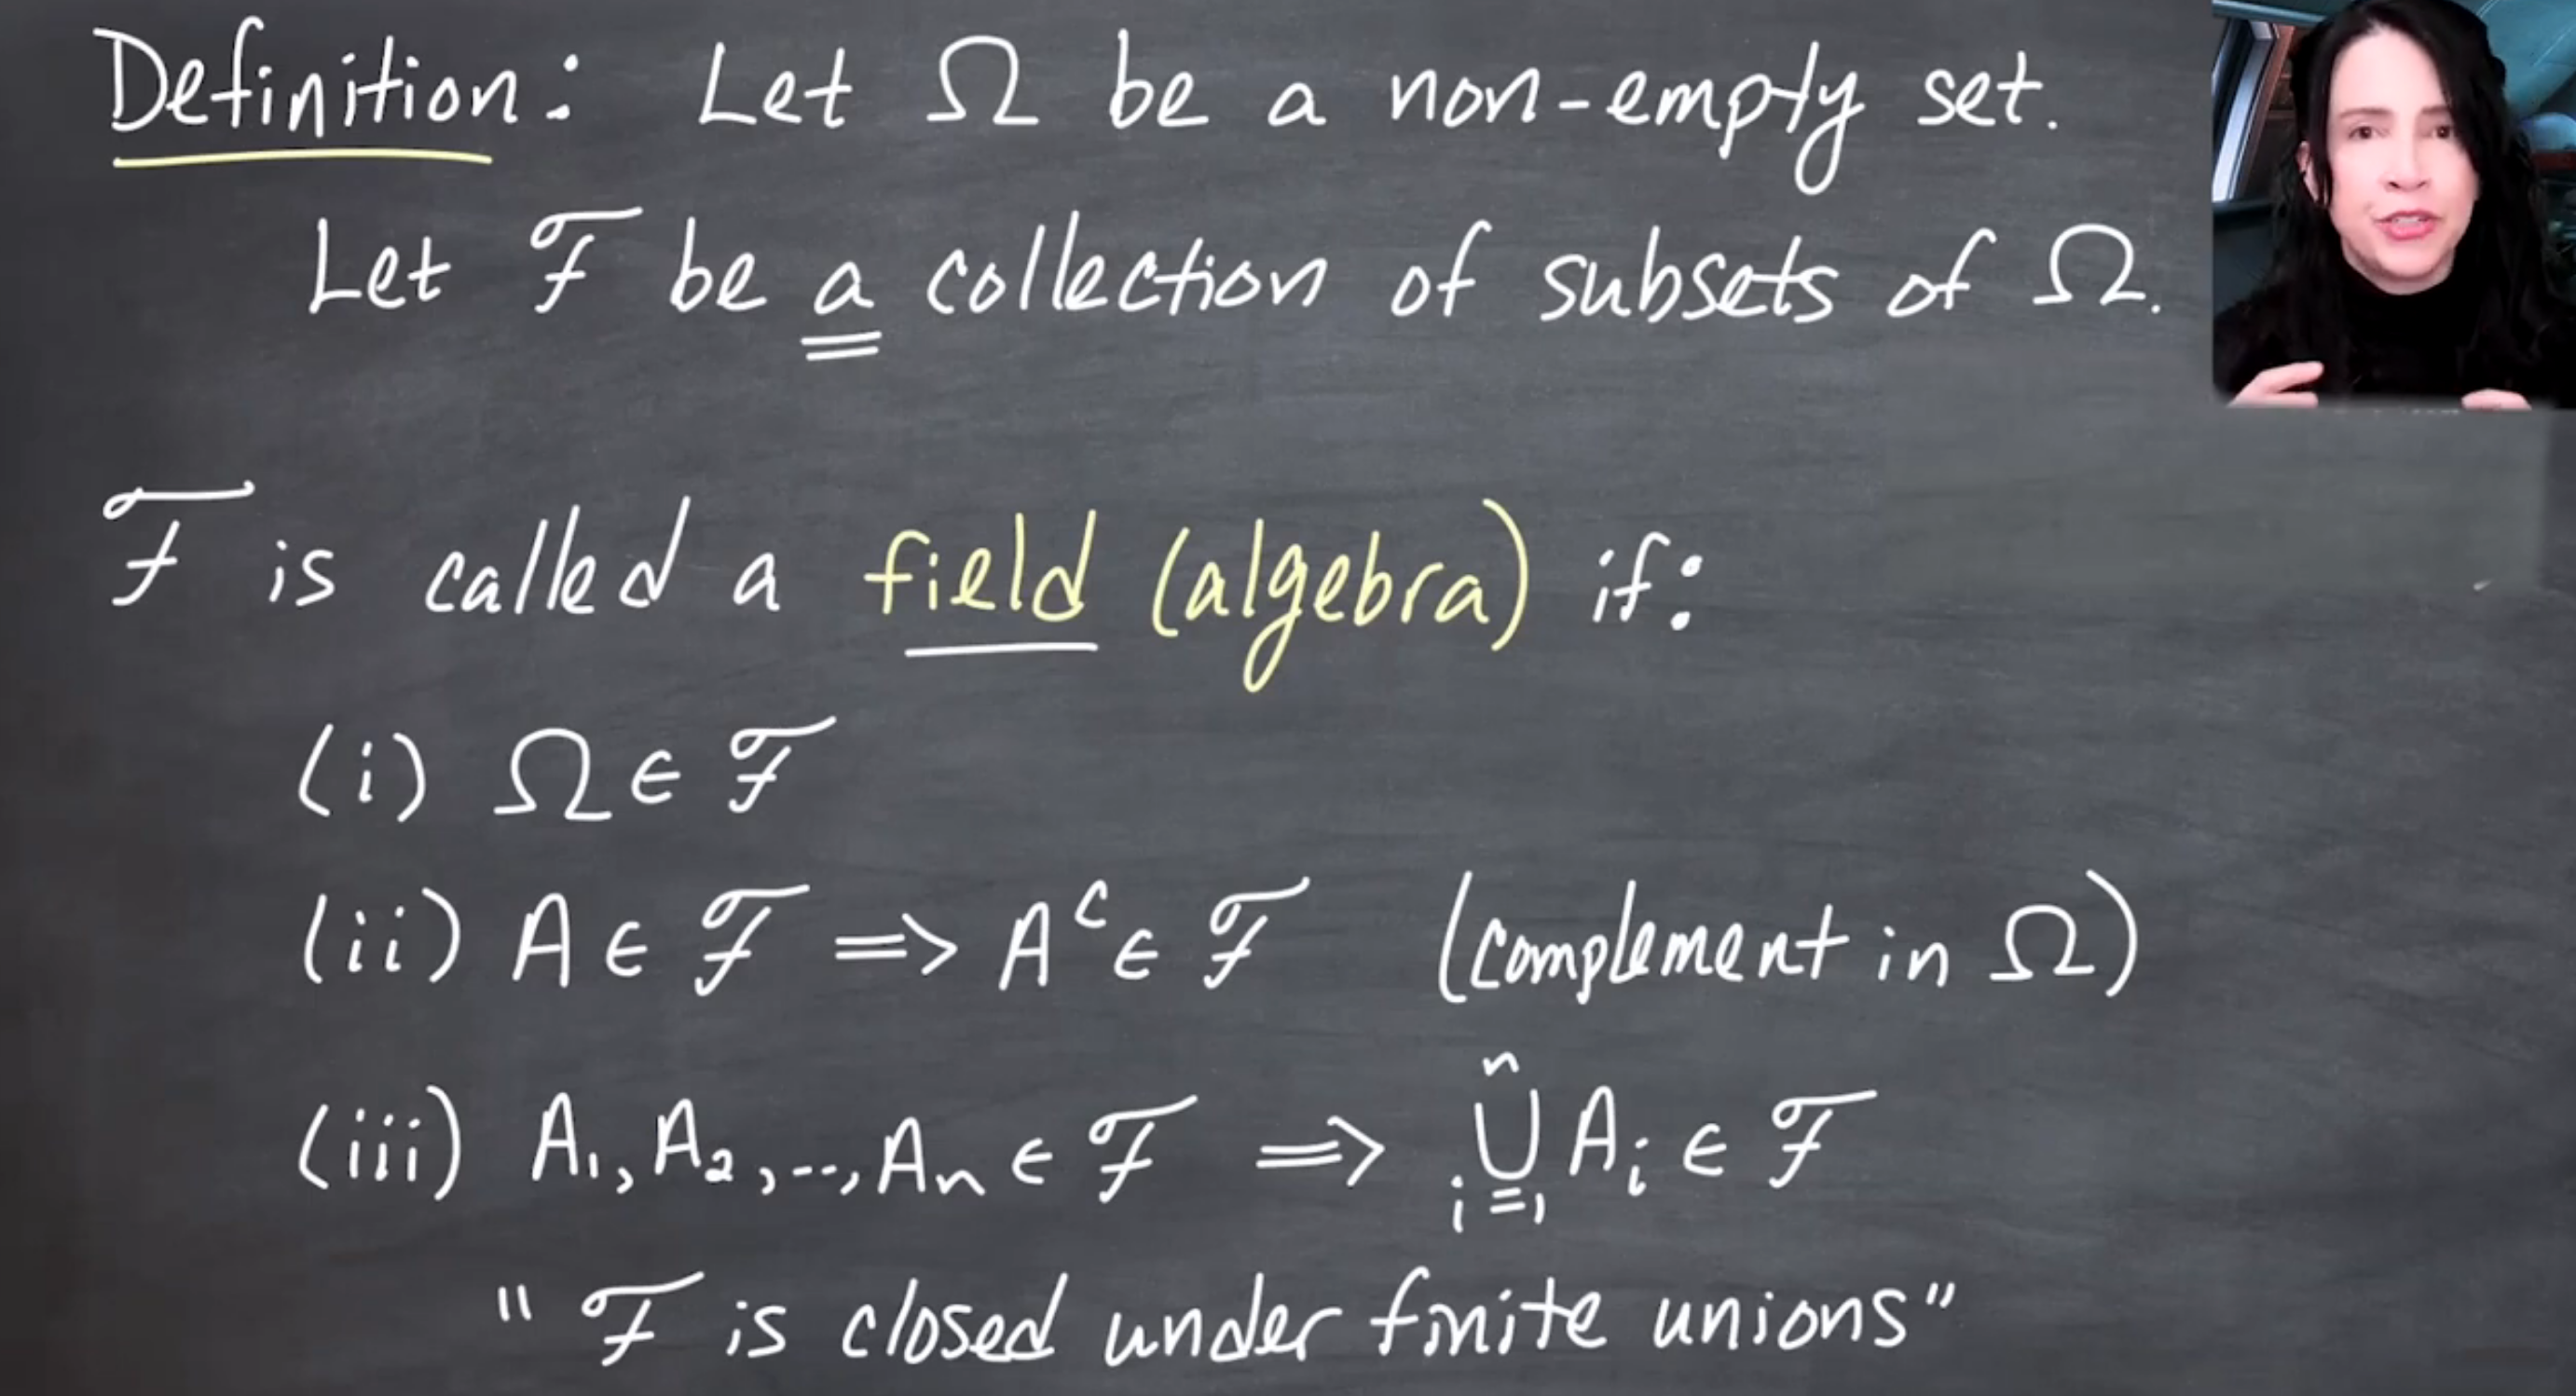 Definition: Let Ω be a non-empty set.
Let ℱ be a collection of subsets of Ω.
ℱ is called a field (algebra) if:
(i) Ω ∈ ℱ
(ii) A ∈ ℱ => Aᶜ ∈ ℱ (complement in Ω)
(iii) A₁, A₂, ..., Aₙ ∈ ℱ => ⋃ⁿᵢ₌₁ Aᵢ ∈ ℱ
"ℱ is closed under finite unions"